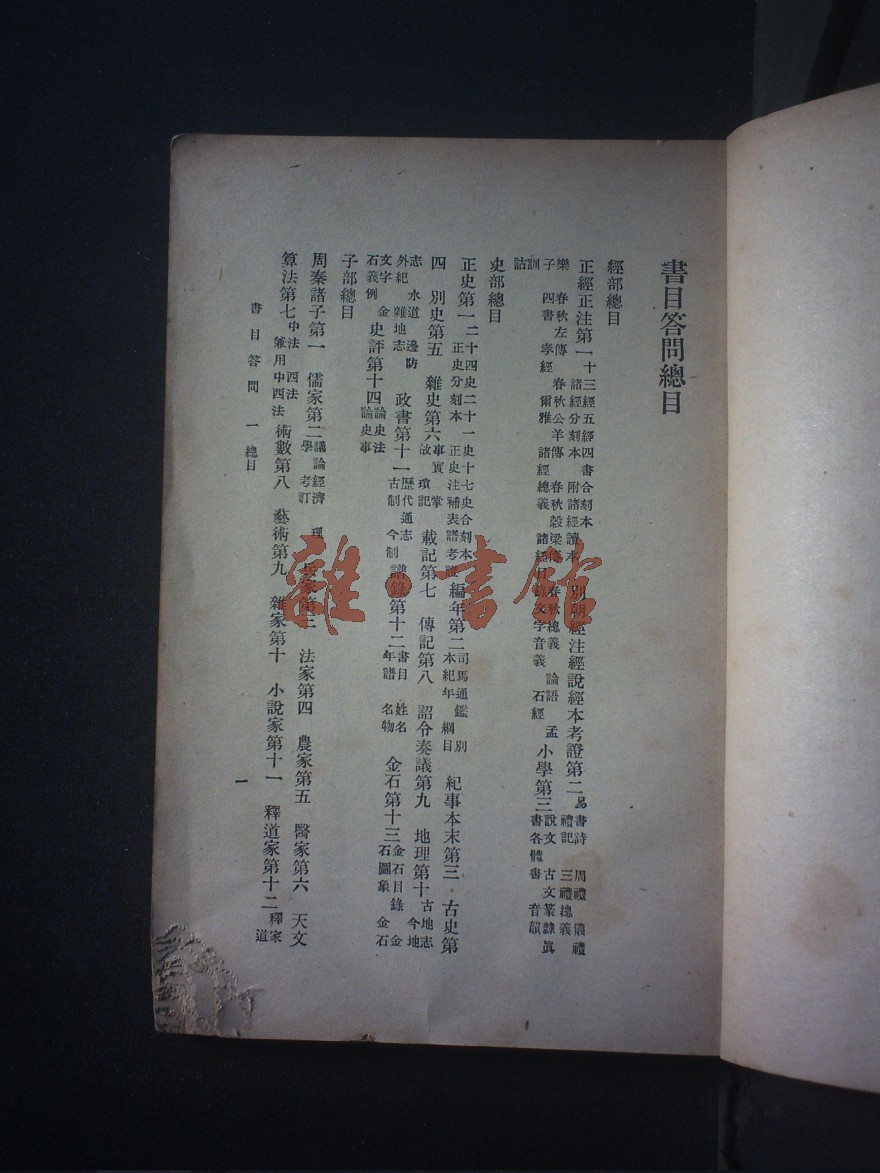 書目答問總目
經部總目
正經正注第一十三經五經四書合刻本諸經分刻本 附諸經讀本 列朝經注經說經本考證第二易書詩 周禮 儀禮禮記 三禮總義
樂 春秋左傳 春秋公羊傳 春秋穀梁傳 春秋總義 論語 孟子 四書 孝經 爾雅 諸經總義 諸經目錄文字音義 石經 小學第三說文 古文篆隸眞書各體書 音韻
訓詁
史部總目
正史第一二十四史二十一史十七史合刻本正史分刻本 正史注補表譜考證 編年第二司馬通鑑 別本紀年 綱目 紀事本末第三 古史第
四 別史第五 雜史第六事實 掌故 瑣記 載記第七 傳記第八 詔令奏議第九 地理第十古地志 今地
志 水道 邊防外紀 雜地志 政書第十一歷代通志古制 今制 譜錄第十二書目 姓名年譜 名物 金石第十三金石目錄 金石圖象 金石
文字 金石義例 史評第十四論史法論史事
子部總目
周秦諸子第一 儒家第二議論經濟 理學 考訂 兵家第三 法家第四 農家第五 醫家第六 天文
算法第七中法 西法兼用中西法 術數第八 藝術第九 雜家第十 小說家第十一 釋道家第十二釋家道
書目答問 一 總目
一
雜·書館